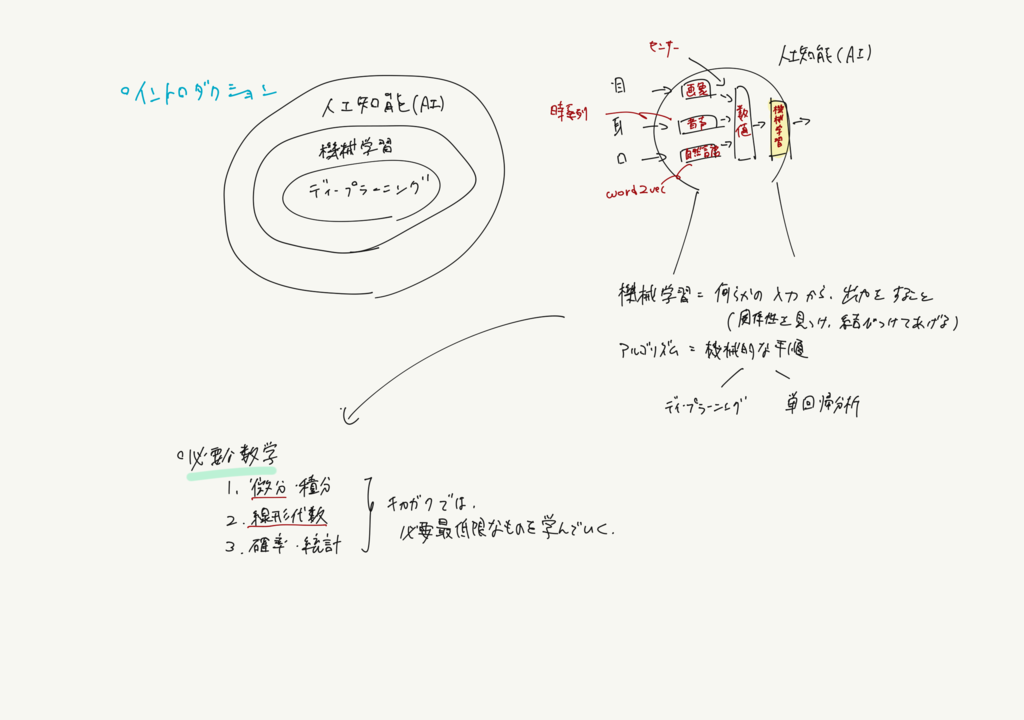 ○イントロダクション
人工知能(AI)
機械学習
ディープラーニング
人工知能(AI)
センサー
目
耳
口
時系列
画像
音声
自然言語
数値
機械学習
word2vec
機械学習 = 何らかの入力から、出力をすること
(関係性を見つけ、結びつけてあげる)
アルゴリズム = 機械的な手順
ディープラーニング
単回帰分析
○必要な数学
1. 微分・積分
2. 線形代数
3. 確率・統計
キカガクでは、
必要最低限なものを学んでいく.